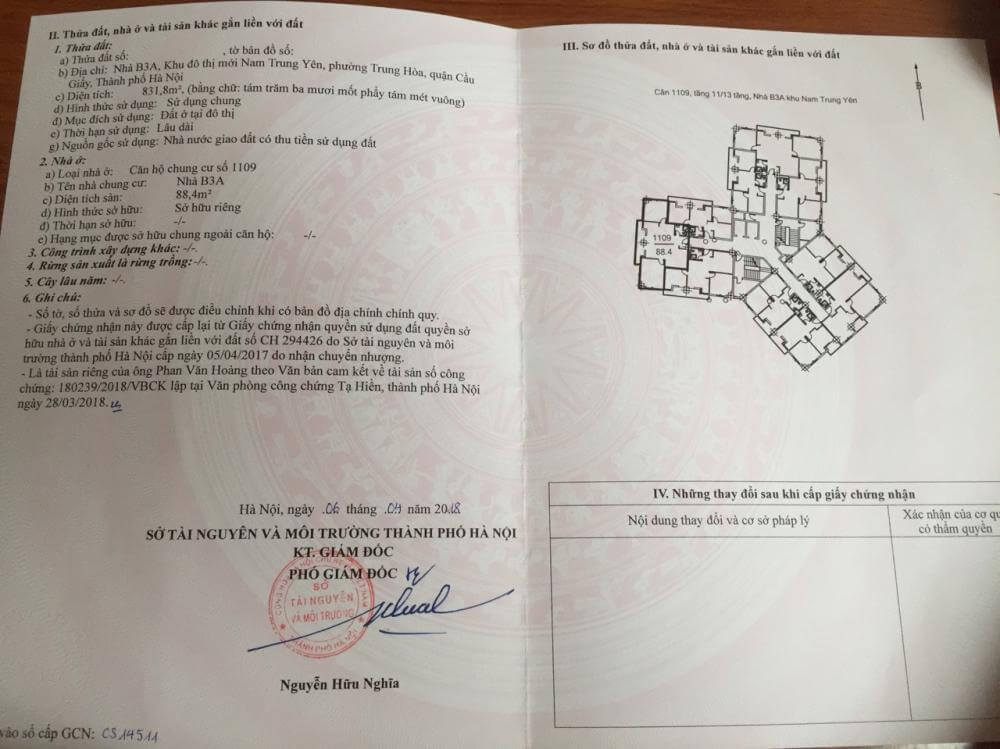 II. Thửa đất, nhà ở và tài sản khác gắn liền với đất
1. Thửa đất:
a) Thửa đất số: , tờ bản đồ số:
b) Địa chỉ: Nhà B3A, Khu đô thị mới Nam Trung Yên, phường Trung Hòa, quận Cầu
Giấy, Thành phố Hà Nội
c) Diện tích: 831,8m², (bằng chữ: tám trăm ba mươi mốt phẩy tám mét vuông)
d) Hình thức sử dụng: Sử dụng chung
đ) Mục đích sử dụng: Đất ở tại đô thị
e) Thời hạn sử dụng: Lâu dài
g) Nguồn gốc sử dụng: Nhà nước giao đất có thu tiền sử dụng đất
2. Nhà ở:
a) Loại nhà ở: Căn hộ chung cư số 1109
b) Tên nhà chung cư: Nhà B3A
c) Diện tích sàn: 88,4m²
d) Hình thức sở hữu: Sở hữu riêng
đ) Thời hạn sở hữu: -/-
e) Hạng mục được sở hữu chung ngoài căn hộ: -/-
3. Công trình xây dựng khác: -/-.
4. Rừng sản xuất là rừng trồng:-/-.
5. Cây lâu năm: -/-.
6. Ghi chú:
- Số tờ, số thửa và sơ đồ sẽ được điều chỉnh khi có bản đồ địa chính chính quy.
- Giấy chứng nhận này được cấp lại từ Giấy chứng nhận quyền sử dụng đất quyền sở
hữu nhà ở và tài sản khác gắn liền với đất số CH 294426 do Sở tài nguyên và môi
trường thành phố Hà Nội cấp ngày 05/04/2017 do nhận chuyển nhượng.
- Là tài sản riêng của ông Phan Văn Hoàng theo Văn bản cam kết về tài sản số công
chứng: 180239/2018/VBCK lập tại Văn phòng công chứng Tạ Hiền, thành phố Hà Nội
ngày 28/03/2018.
Hà Nội, ngày 06 tháng 04 năm 2018
SỞ TÀI NGUYÊN VÀ MÔI TRƯỜNG THÀNH PHỐ HÀ NỘI
KT. GIÁM ĐỐC
PHÓ GIÁM ĐỐC
SỞ
TÀI NGUYÊN
VÀ MÔI TRƯỜNG
THÀNH PHỐ HÀ NỘI
Nguyễn Hữu Nghĩa
vào sổ cấp GCN: CS14511
III. Sơ đồ thửa đất, nhà ở và tài sản khác gắn liền với đất
B
Căn 1109, tầng 11/13 tầng, Nhà B3A khu Nam Trung Yên
1109
88.4
IV. Những thay đổi sau khi cấp giấy chứng nhận
Nội dung thay đổi và cơ sở pháp lý
Xác nhận của cơ qu
có thẩm quyền